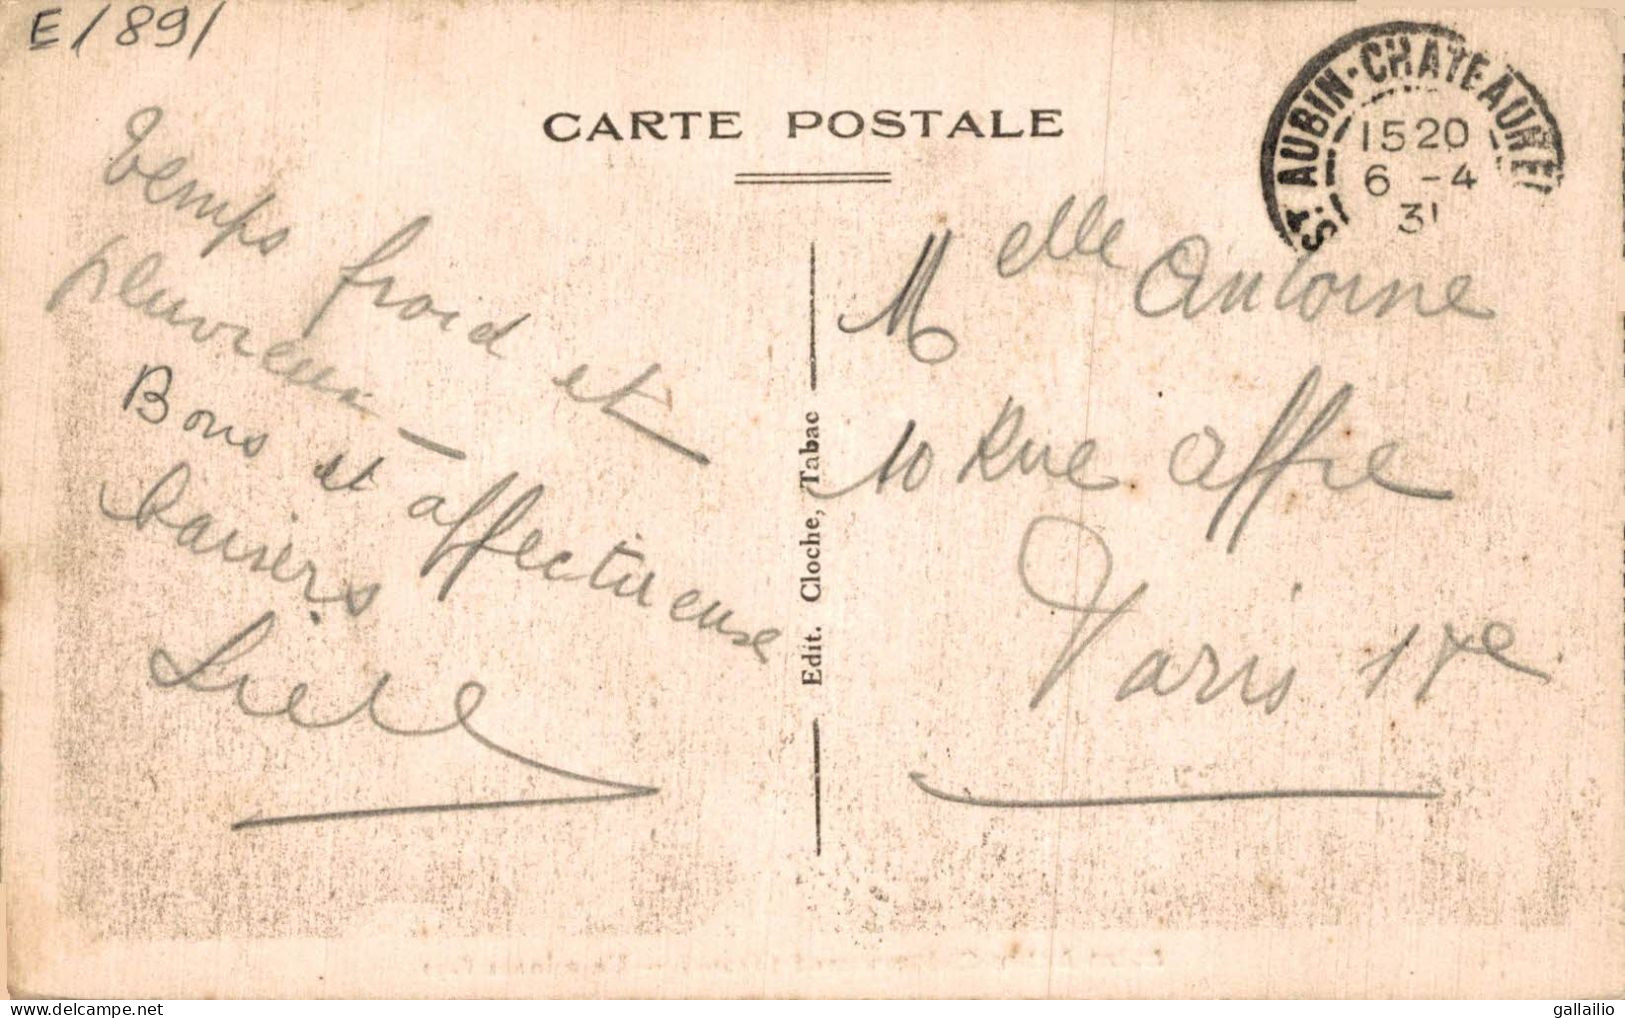 E/89/
CARTE POSTALE
ST AUBIN-CHATEAUNEUF
15 20
6 -4
31
Temps froid et
pluvieux —
Bons et affectueuse
baisers
Melle Antoine
10 Rue Affre
Paris 17e
Edit. Cloche, Tabac
gallailio